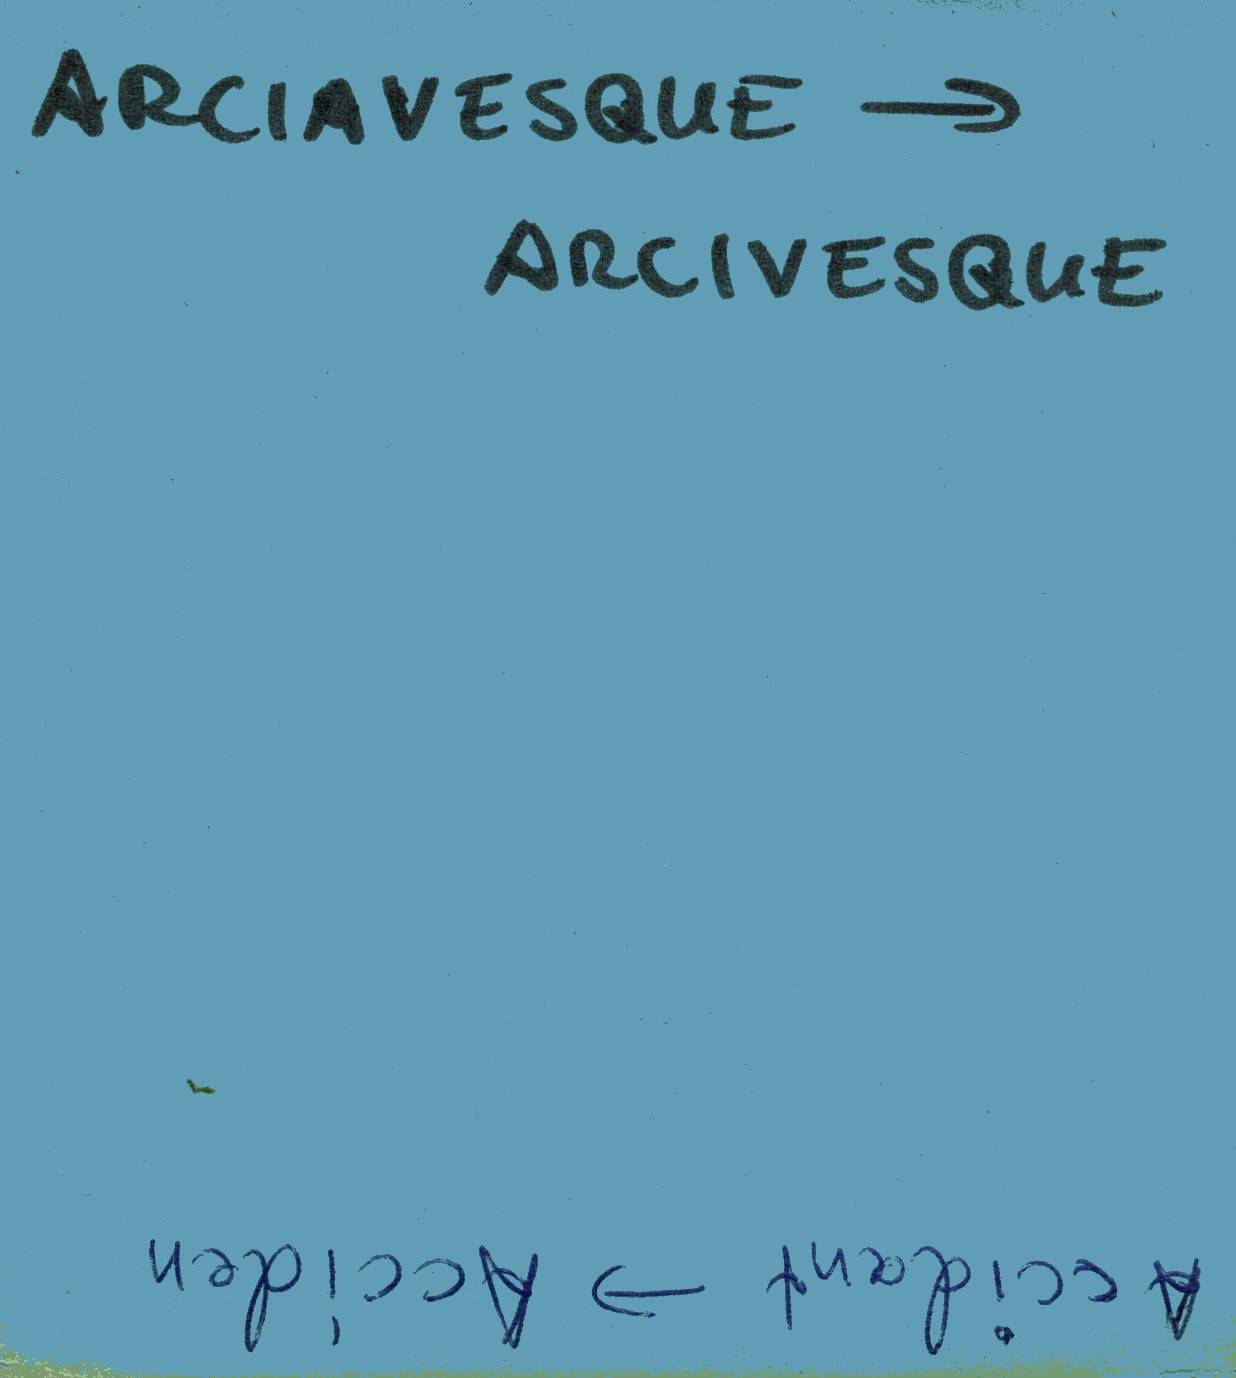 ARCIAVESQUE →
ARCIVESQUE
Accident → Acciden